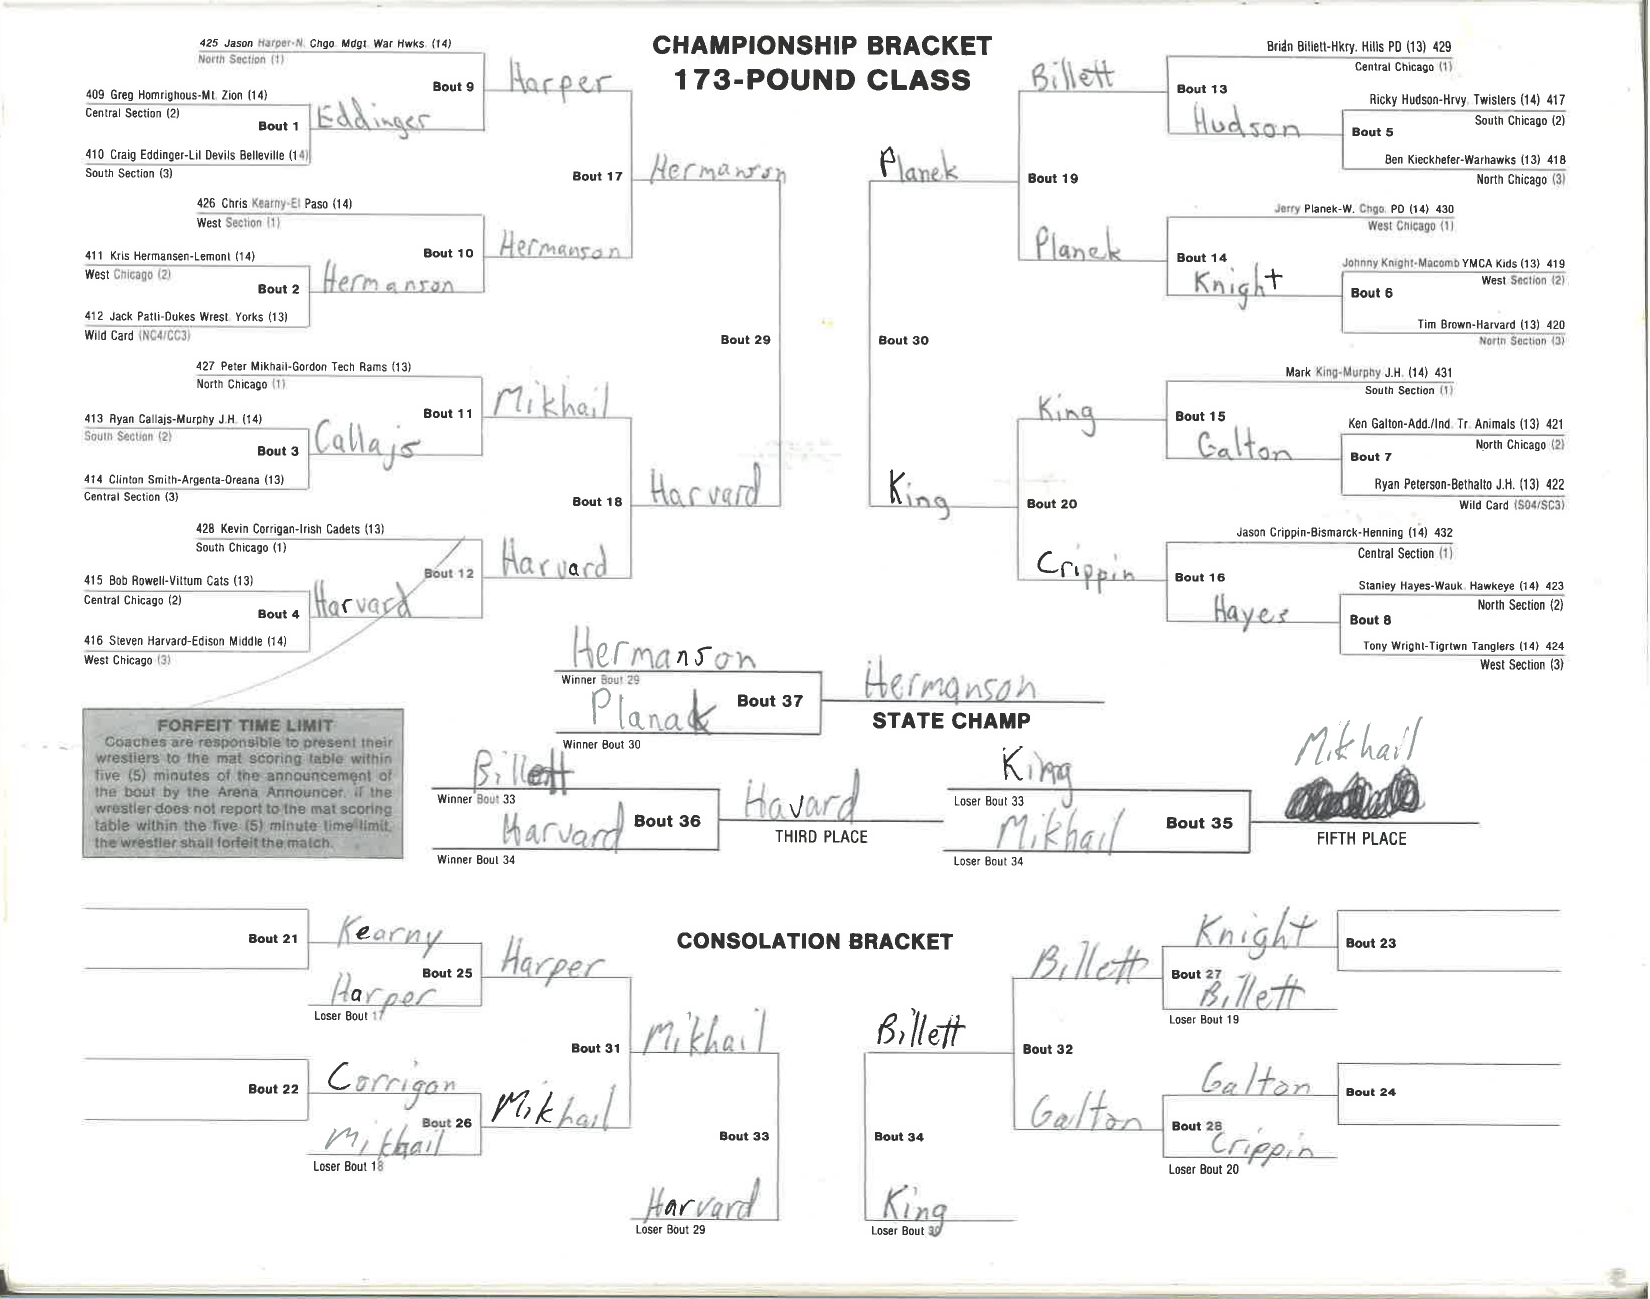 CHAMPIONSHIP BRACKET
173-POUND CLASS
425 Jason Harper-N. Chgo. Mdgt. War Hwks. (14)
North Section (1)
Bout 9
Harper
409 Greg Homrighous-Mt. Zion (14)
Central Section (2)
Bout 1
Eddinger
410 Craig Eddinger-Lil Devils Belleville (14)
South Section (3)
Bout 17
Hermanson
426 Chris Kearny-El Paso (14)
West Section (1)
Bout 10
Hermanson
411 Kris Hermansen-Lemont (14)
West Chicago (2)
Bout 2
Hermanson
412 Jack Patti-Dukes Wrest. Yorks (13)
Wild Card (NC4/CC3)
Bout 29
427 Peter Mikhail-Gordon Tech Rams (13)
North Chicago (1)
Bout 11
Mikhail
413 Ryan Callajs-Murphy J.H. (14)
South Section (2)
Bout 3
Callajs
414 Clinton Smith-Argenta-Oreana (13)
Central Section (3)
Bout 18
Harvard
428 Kevin Corrigan-Irish Cadets (13)
South Chicago (1)
Bout 12
Harvard
415 Bob Rowell-Vittum Cats (13)
Central Chicago (2)
Bout 4
Harvard
416 Steven Harvard-Edison Middle (14)
West Chicago (3)
Brian Billett-Hkry. Hills PD (13) 429
Central Chicago (1)
Billett
Bout 13
Hudson
Ricky Hudson-Hrvy. Twisters (14) 417
South Chicago (2)
Bout 5
Ben Kieckhefer-Warhawks (13) 418
North Chicago (3)
Planek
Bout 19
Jerry Planek-W. Chgo. PD (14) 430
West Chicago (1)
Planek
Bout 14
Knight
Johnny Knight-Macomb YMCA Kids (13) 419
West Section (2)
Bout 6
Tim Brown-Harvard (13) 420
North Section (3)
Bout 30
Mark King-Murphy J.H. (14) 431
South Section (1)
King
Bout 15
Galton
Ken Galton-Add./Ind. Tr. Animals (13) 421
North Chicago (2)
Bout 7
Ryan Peterson-Bethalto J.H. (13) 422
Wild Card (S04/SC3)
King
Bout 20
Jason Crippin-Bismarck-Henning (14) 432
Central Section (1)
Crippin
Bout 16
Hayes
Stanley Hayes-Wauk. Hawkeye (14) 423
North Section (2)
Bout 8
Tony Wright-Tigrtwn Tanglers (14) 424
West Section (3)
Hermanson
Winner Bout 29
Bout 37
Planak
Winner Bout 30
Hermanson
STATE CHAMP
FORFEIT TIME LIMIT
Coaches are responsible to present their
wrestlers to the mat scoring table within
five (5) minutes of the announcement of
the bout by the Arena Announcer. If the
wrestler does not report to the mat scoring
table within the five (5) minute time limit,
the wrestler shall forfeit the match.
Billett
Winner Bout 33
Harvard
Bout 36
Winner Bout 34
Havard
THIRD PLACE
King
Loser Bout 33
Mikhail
Bout 35
Loser Bout 34
Mikhail
FIFTH PLACE
CONSOLATION BRACKET
Bout 21
Kearny
Bout 25
Harper
Harper
Loser Bout 17
Bout 31
Mikhail
Bout 22
Corrigan
Bout 26
Mikhail
Mikhail
Loser Bout 18
Bout 33
Harvard
Loser Bout 29
Knight
Bout 23
Billett
Bout 27
Billett
Loser Bout 19
Billett
Bout 32
Galton
Bout 24
Galton
Bout 28
Crippin
Loser Bout 20
Bout 34
King
Loser Bout 30